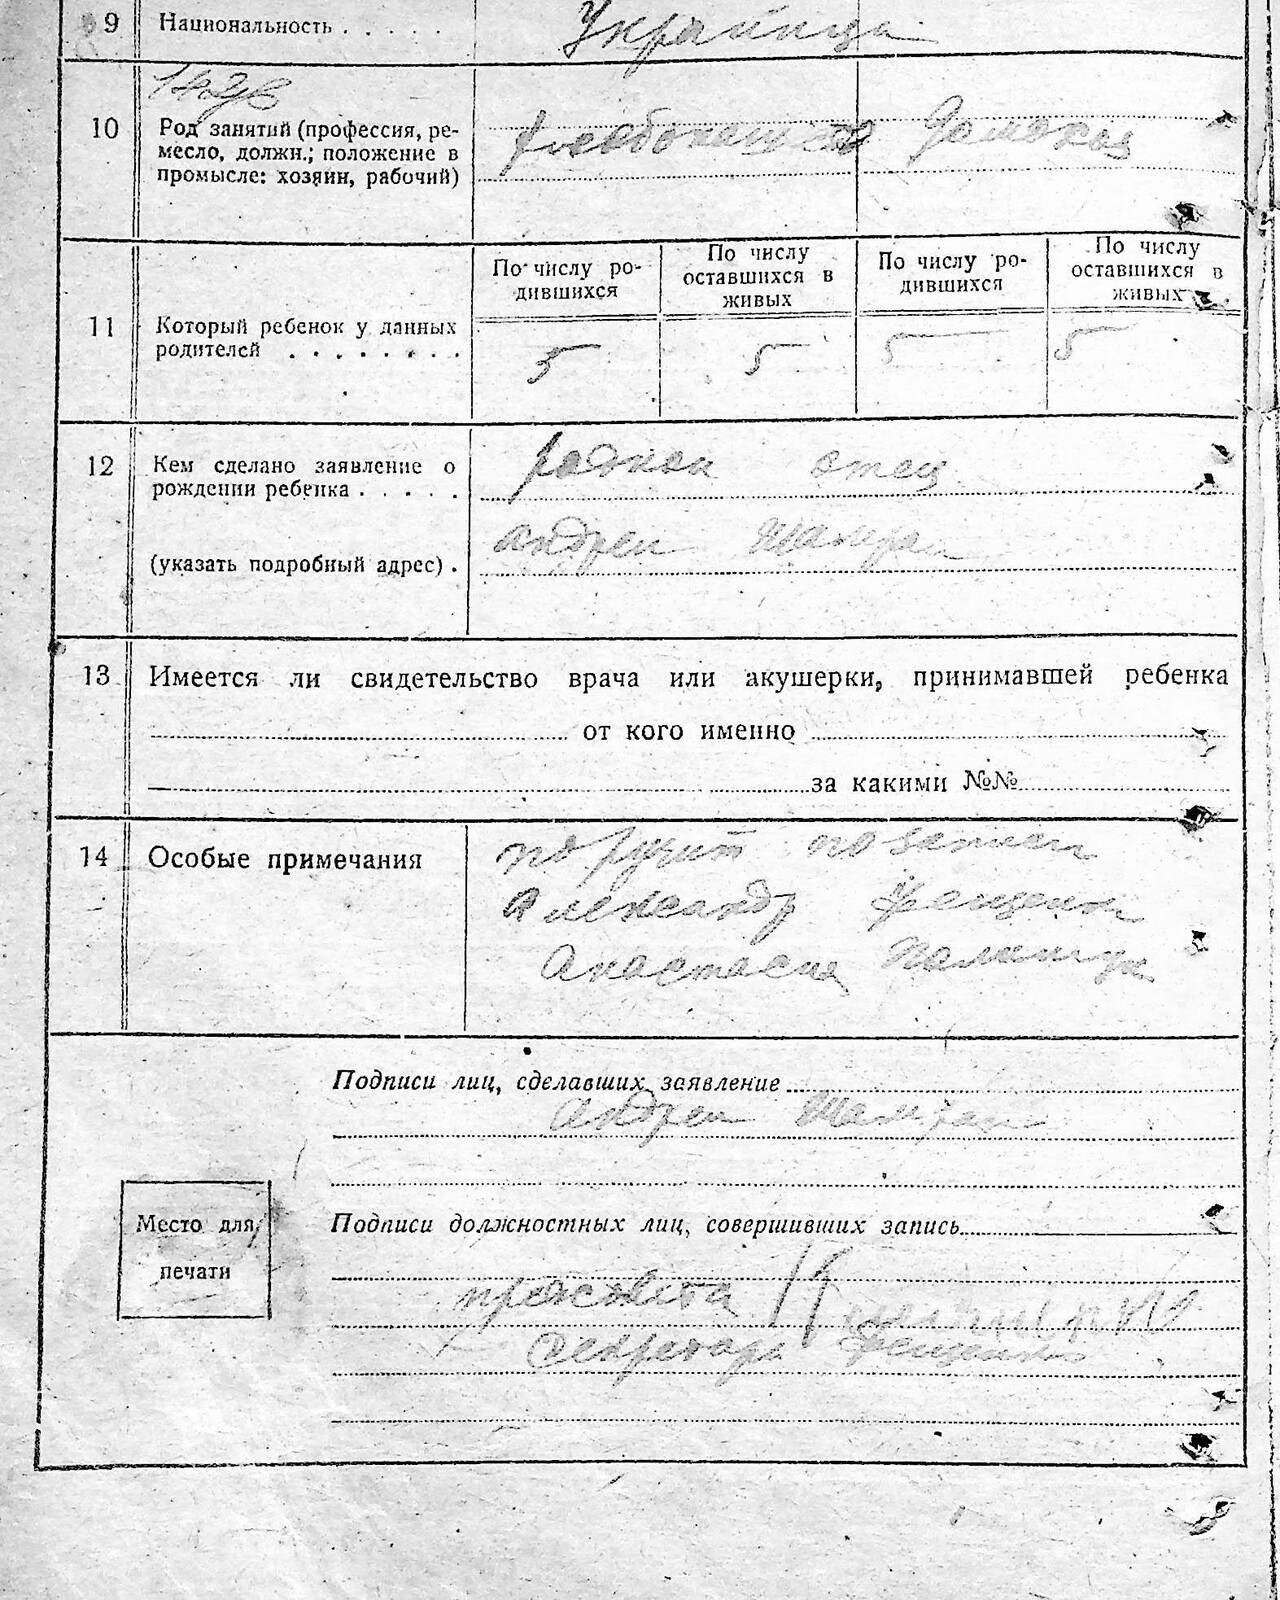 9 Национальность . . . . . Украинца
10 Род занятий (профессия, ре-
месло, должн.; положение в
промысле: хозяин, рабочий)
хлебопашество
По числу ро-
дившихся
По числу
оставшихся в
живых
По числу ро-
дившихся
По числу
оставшихся в
живых
11 Который ребенок у данных
родителей . . . . . . . .
5 5 5 5
12 Кем сделано заявление о
рождении ребенка . . . . .
отец
(указать подробный адрес) .
Андрей
13 Имеется ли свидетельство врача или акушерки, принимавшей ребенка
от кого именно
за какими №№
14 Особые примечания
Александр Фещенко
Анастасия Полищук
Подписи лиц, сделавших заявление
Андрей
Подписи должностных лиц, совершивших запись
Место для
печати
Секретарь Фещенко